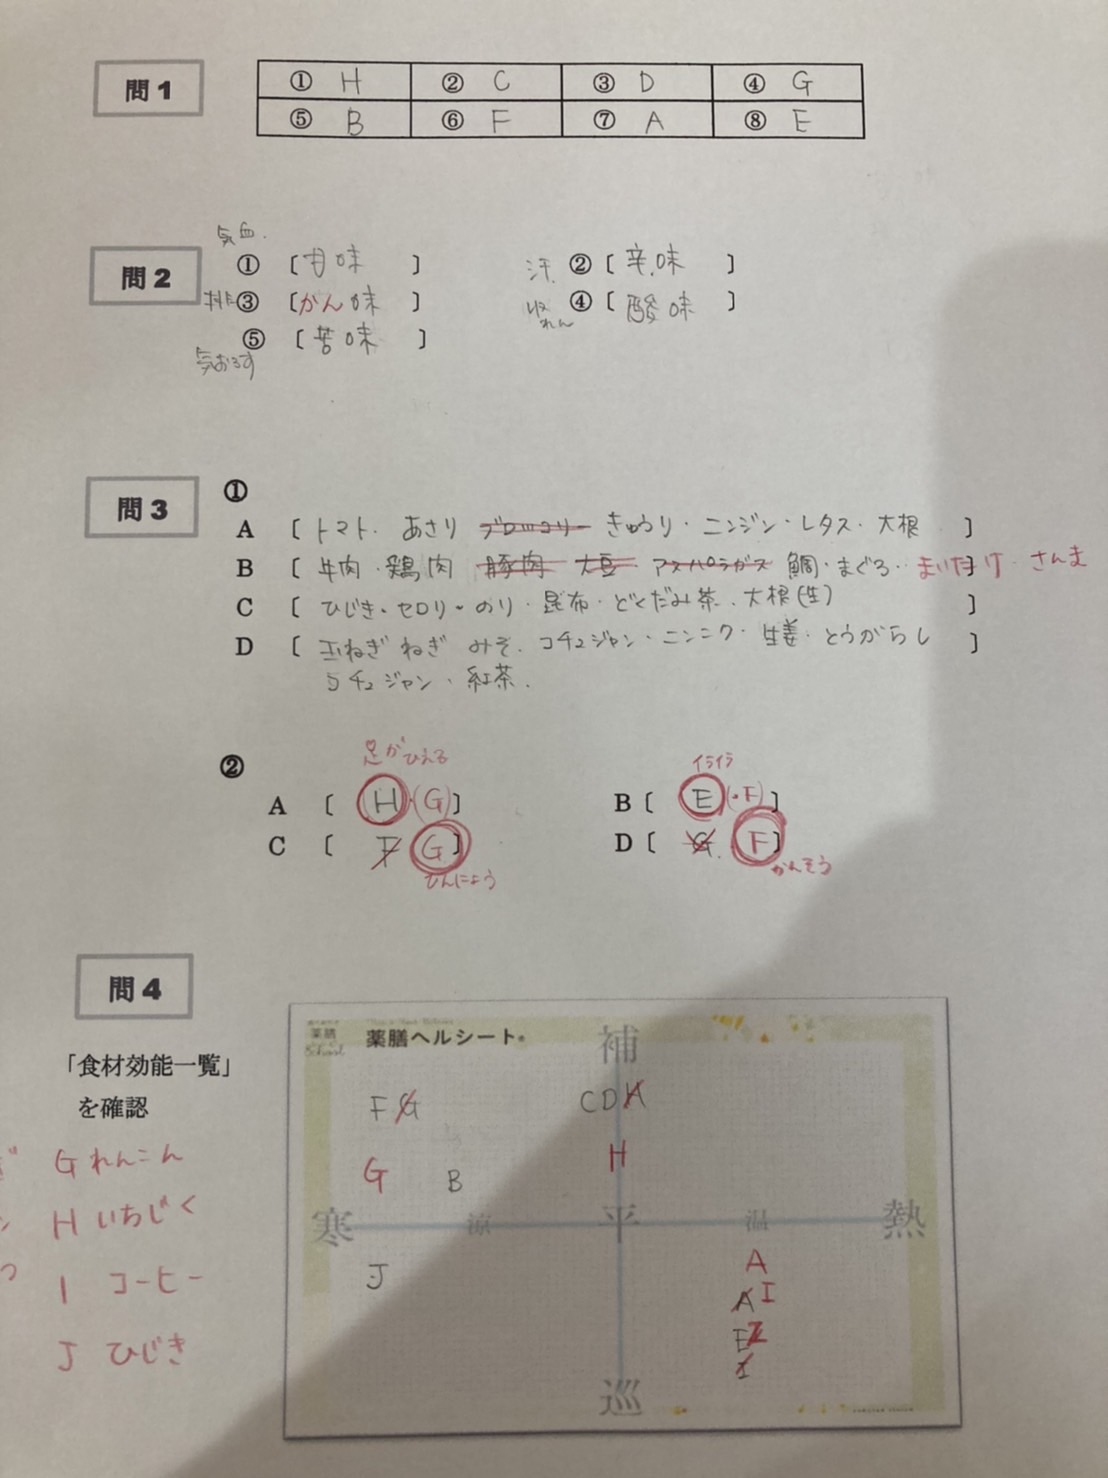 問1
① H ② C ③ D ④ G
⑤ B ⑥ F ⑦ A ⑧ E
気血.
問2 ① 〔甘味 〕 汗. ②〔 辛味 〕
排 ③ 〔かん味 〕 収れん ④〔 酸味 〕
⑤ 〔 苦味 〕
気おろす
問3 ①
A 〔 トマト. あさり ブロッコリー きゅうり・ニンジン・レタス・大根 〕
B 〔 牛肉・鶏肉 豚肉 大豆 アスパラガス 鯛・まぐろ・・まいたけ・さんま
C 〔 ひじき・セロリ・のり・昆布・どくだみ茶. 大根(生) 〕
D 〔 玉ねぎ ねぎ みそ. コチュジャン・ニンニク・生姜・とうがらし 〕
ラチュジャン・紅茶.
②
足がひえる イライラ
A 〔 (H)・(G)〕 B〔 E (・F) 〕
C 〔 F G 〕 D〔 G. F 〕
ひんにょう かんそう
問4
「食材効能一覧」
を確認
G れんこん
H いちじく
I コーヒー
J ひじき
薬膳
School
薬膳ヘルシート®
補
F G CD H
G B H
寒 涼 平 温 熱
J A
A I
E I
I
巡